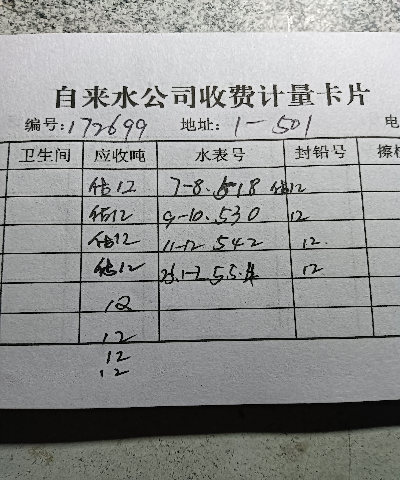 自来水公司收费计量卡片
编号:172699 地址:1-501 电
卫生间 应收吨 水表号 封铅号 擦
估12 7-8. 518 估12
估12 9-10. 530 12
估12 11-12 542 12.
估12 1-2 55 12
12
12
12
12